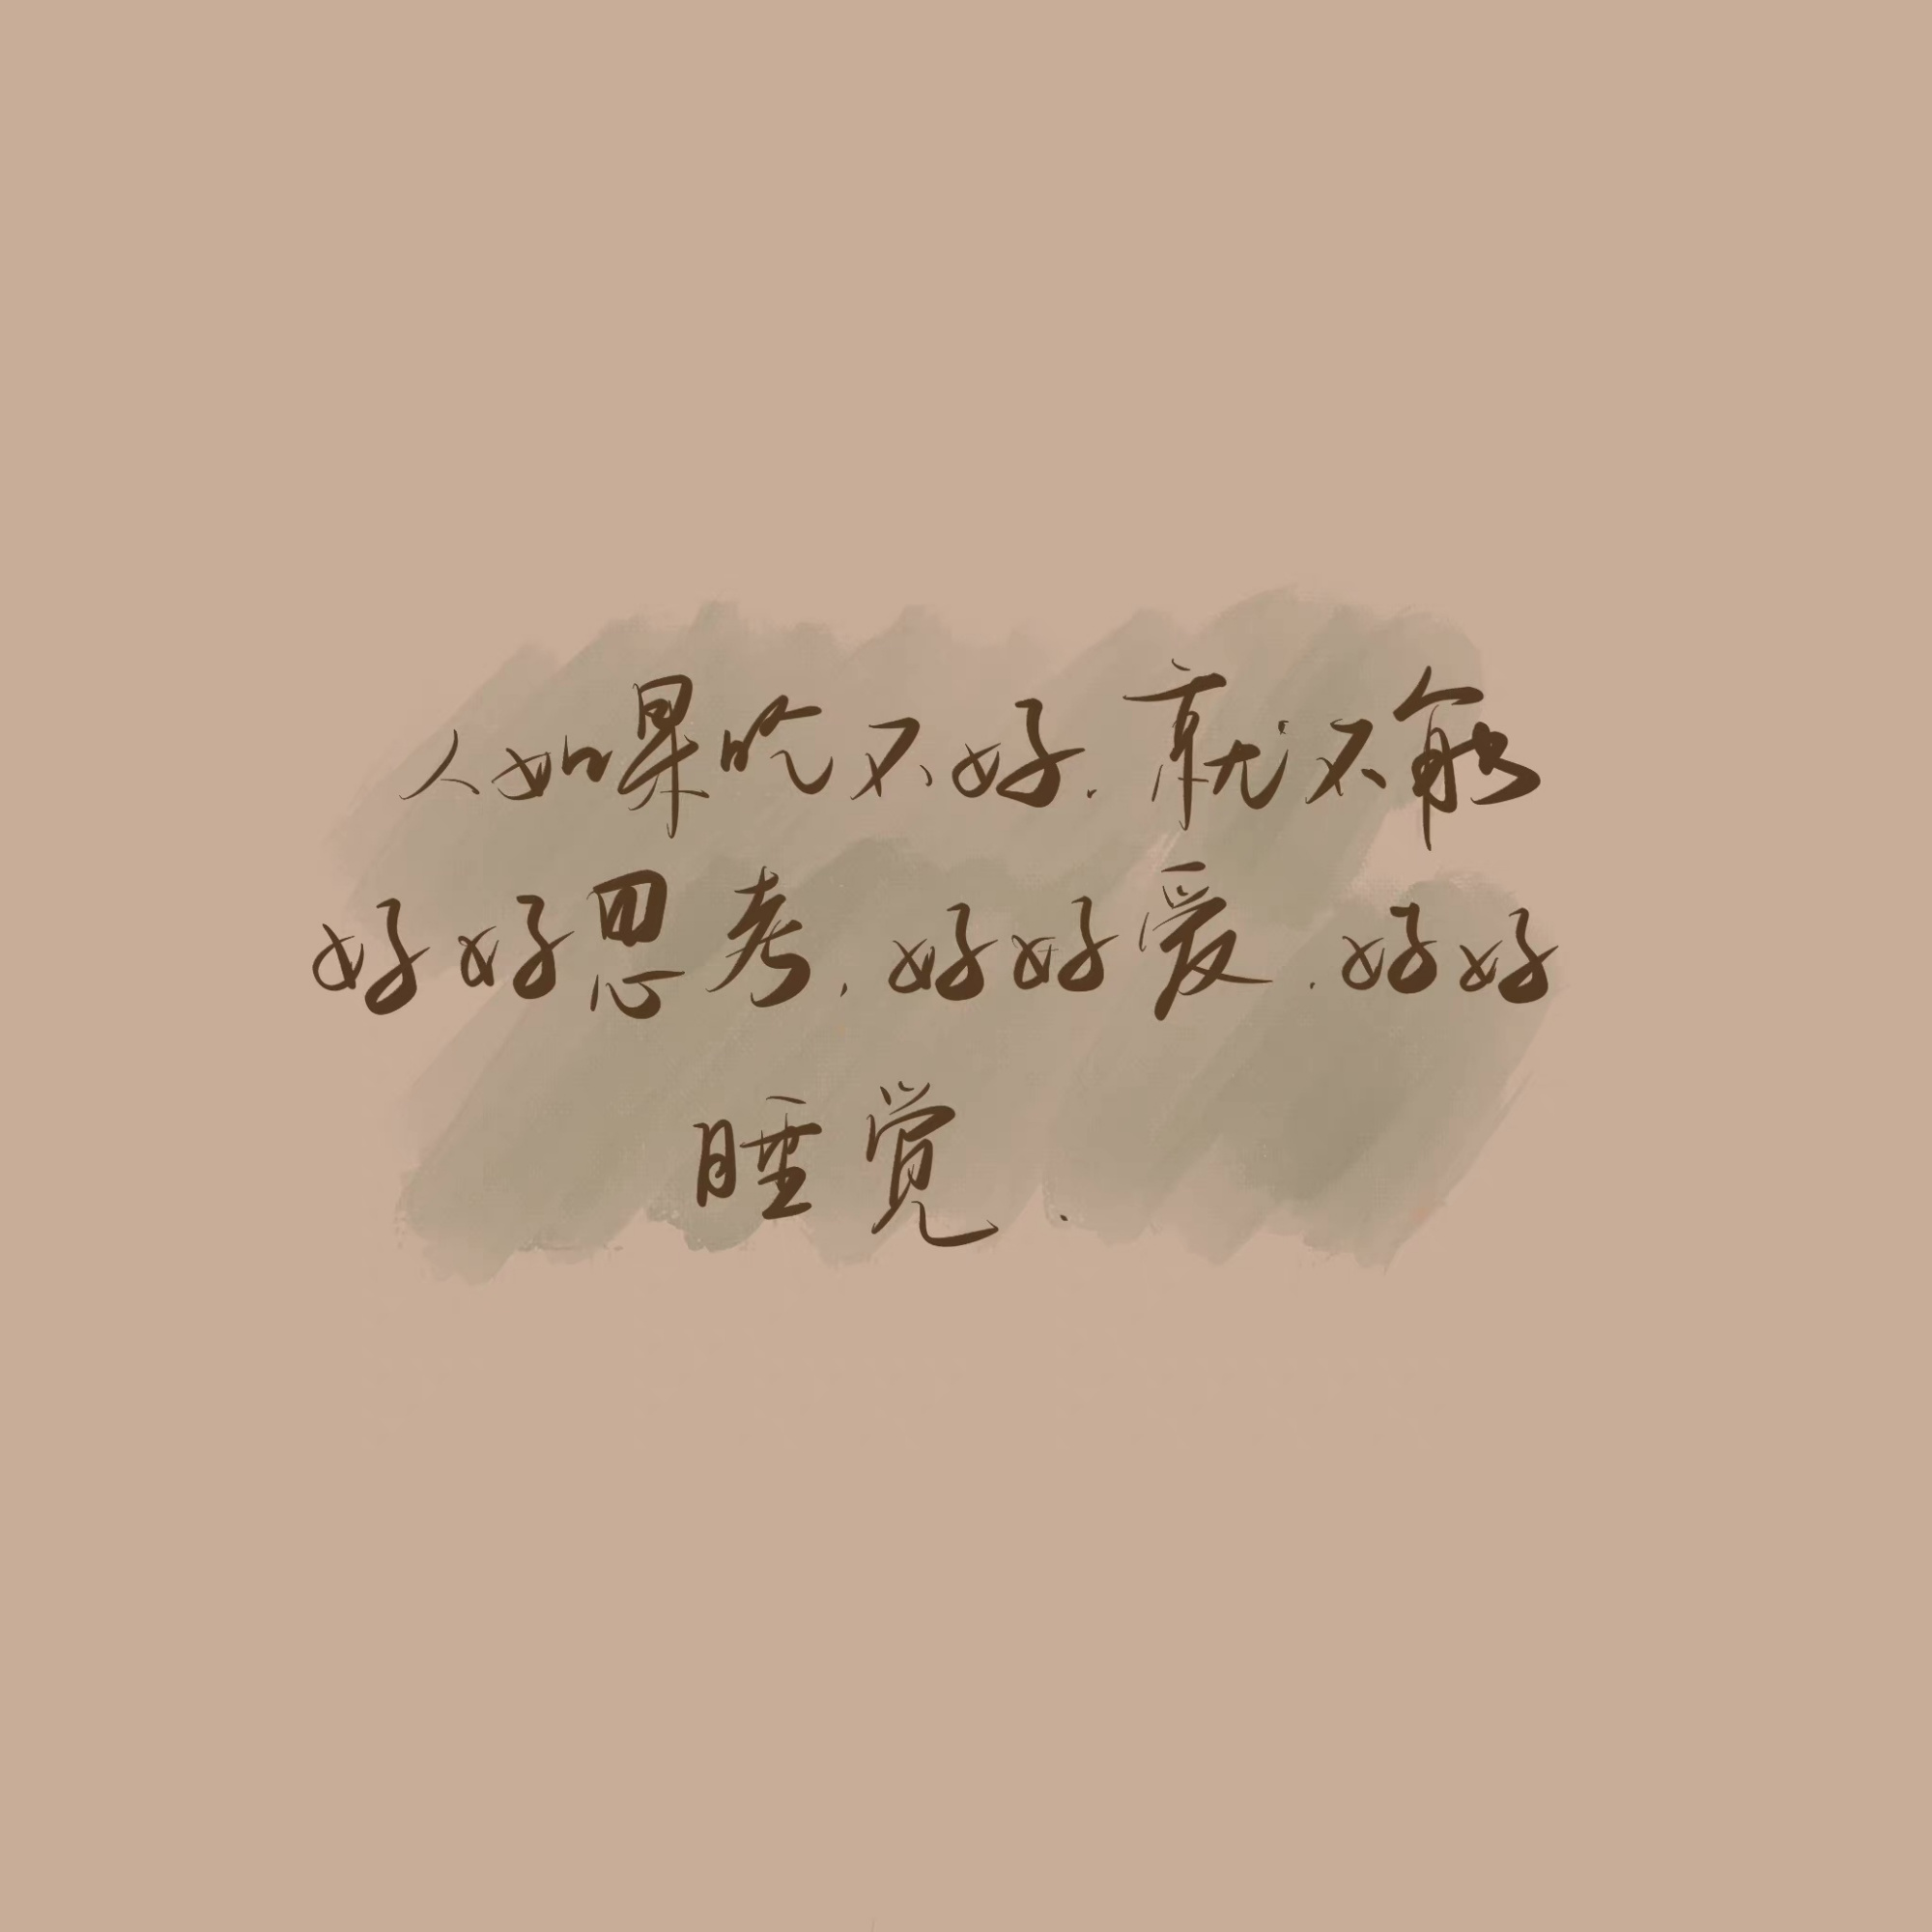 人如果吃不好.就不能
好好思考.好好爱.好好
睡觉.